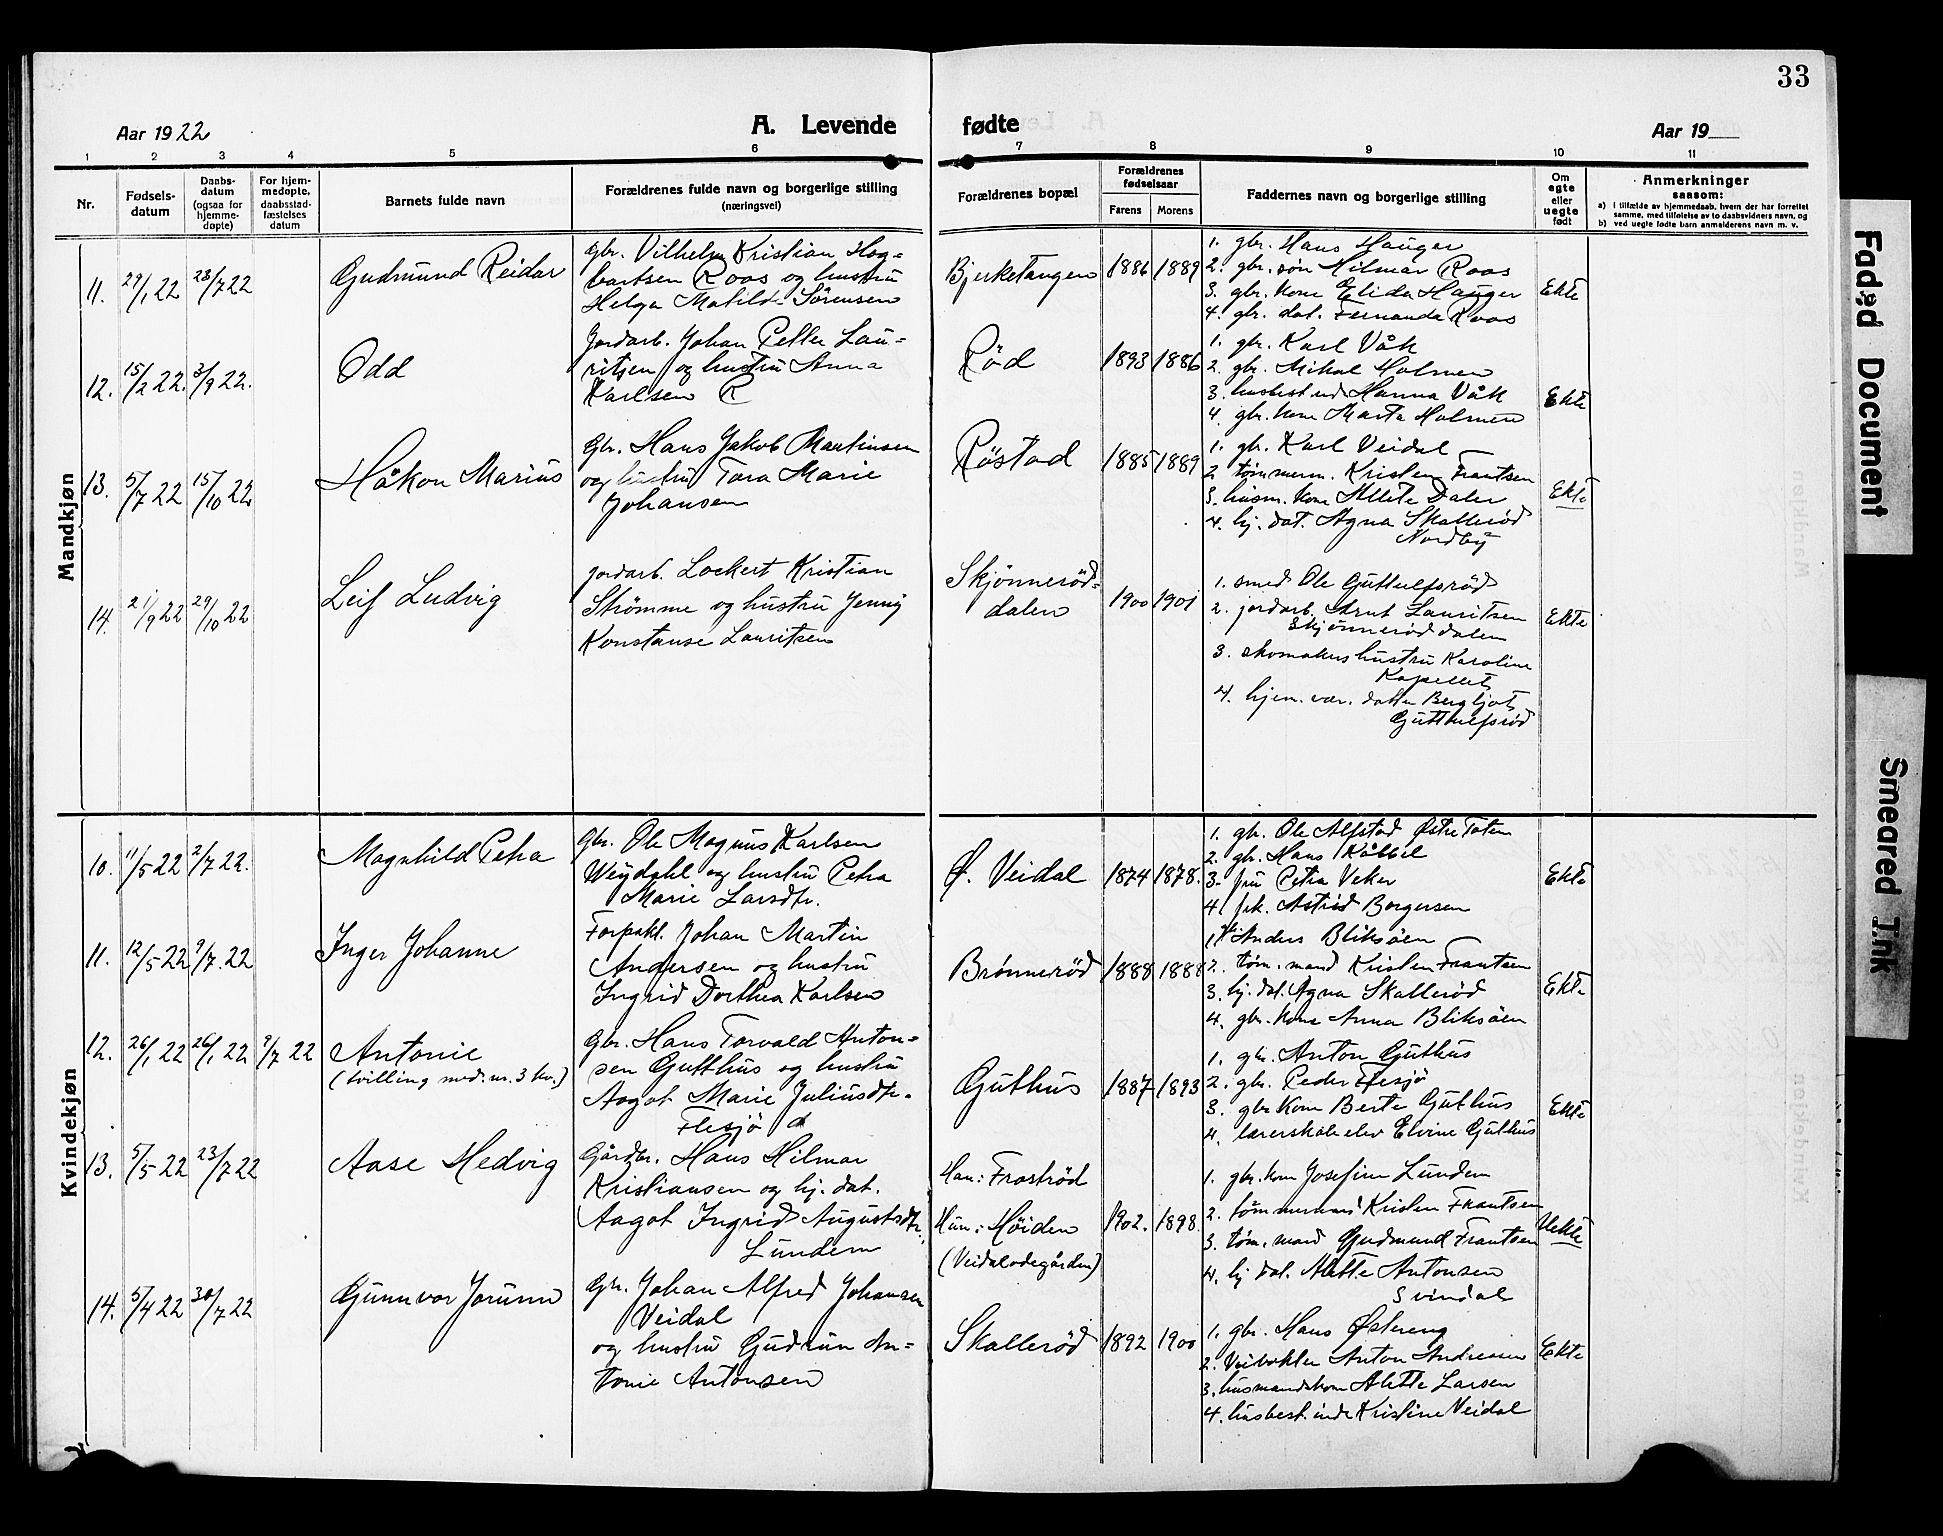 33
Aar 1922
A. Levende
fødte
Aar 19
1 2 3 4 5 6 7 8 9 10 11
Nr.
Fødsels-
datum
Daabs-
datum
(ogsaa for
hjemme-
døpte)
For hjem-
medøpte,
daabsstad-
fæstelses
datum
Barnets fulde navn
Forældrenes fulde navn og borgerlige stilling
(næringsvei)
Forældrenes bopæl
Forældrenes
fødselsaar
Farens Morens
Faddernes navn og borgerlige stilling
Om
egte
eller
uegte
født
Anmerkninger
saasom:
a) i tilfælde av hjemmedaab, hvem der har forrettet
samme, med tilføielse av to daabsvidners navn, og
b) ved uegte fødte barn anmelderens navn m. v.
Mandkjøn
11. 29/1 22 23/7 22
Gudmund Reidar
gbr. Vilhelm Kristian Hag-
bartsen Roos og hustru
Helga Matilde Sørensen
Bjerketangen
1886 1889
1. gbr. Hans Hauger
2. gbr. søn Hilmar Roos
3. gbr. kone Elida Hauger
4. gbr. dat. Fernanda Roos
Ekte
12. 15/2 22. 3/9 22.
Odd
Jordarb. Johan Petter Lau-
ritsen og hustru Anna
Karlsen R
Rød
1893 1886
1. gbr. Karl Våk
2. gbr. Mikal Holmen
3. husbest.ind Hanna Våk
4. gbr. kone Marta Holmen
Ekte
13. 5/7 22 15/10 22
Håkon Marius
Gbr. Hans Jakob Martinsen
og hustru Tora Marie
Johansen
Røstad
1885 1889
1. gbr. Karl Veidal
2. tømmerm. Kristen Frantsen
3. husm. kone Alette Daler
4. hj. dat. Agna Skallerød
Nordby
Ekte
14. 21/9 22 29/10 22
Leif Ludvig
Jordarb. Lockert Kristian
Strømme og hustru Jenny
Konstanse Lauritsen
Skjønnerød-
dalen
1900 1901
1. smed Ole Guttulfsrød
2. jordarb. Arnt Lauritsen
Skjønnerøddalen
3. skomakers hustru Karoline
Kapellet
4. hjem. vær. datter Bergljot
Guttulfsrød
Ekte
Kvindekjøn
10. 11/5 22 2/7 22.
Magnhild Petra
Gbr. Ole Magnus Karlsen
Weydahl og hustru Petra
Marie Larsdtr.
Ø. Veidal
1874 1878.
1. gbr. Ole Alfstad Østre Toten
2. gbr. Hans Kåbbel
3. fru Petra Veker
4. frk. Astrid Borgersen
Ekte
11. 12/5 22 9/7. 22
Inger Johanne
Forpakt. Johan Martin
Andersen og hustru
Ingrid Dorthea Karlsen
Brønnerød
1888 1888
1. Anders Bliksøen
2. tøm. mand Kristen Frantsen
3. hj. dat. Agna Skallerød
4. gbr. kone Anna Bliksøen
Ekte
12. 26/1 22 26/1 22 9/7 22
Antonie
(tvilling med nr. 3 kv.)
Gbr. Hans Torvald Anton-
sen Gutthus og hustru
Aagot Marie Juliusdtr.
Flesjø
Guthus
1887 1893
1. gbr. Anton Guthus
2. gbr. Peder Flesjø
3. gbr kone Berte Guthus
4. lærerskoleelev Elvine Guthus
Ekte
13. 5/5 22 23/7 22
Aase Hedvig
Gårdbr. Hans Hilmar
Kristiansen og hj. dat.
Aagot Ingrid Augustsdtr.
Lundem
Han: Frostrød
Hun: Høiden
(Veidalødegården)
1902. 1898.
1. gbr. kone Josefine Lundem
2. tømmermand Kristen Frantsen
3. tøm. mand Gudmund Frantsen
4. hj dat. Alette Antonsen
Svindal
Uekte
14. 5/4 22 30/7 22
Gunnvor Jorunn
Gbr. Johan Alfred Johansen
Veidal
og hustru Gudrun An-
tonie Antonsen
Skallerød
1892 1900
1. gbr. Hans Østereng
2. Veivokter Anton Andresen
3. husmandskone Alette Larsen
4. husbest.inde Kristine Veidal
Ekte
Faded Document
Smeared Ink